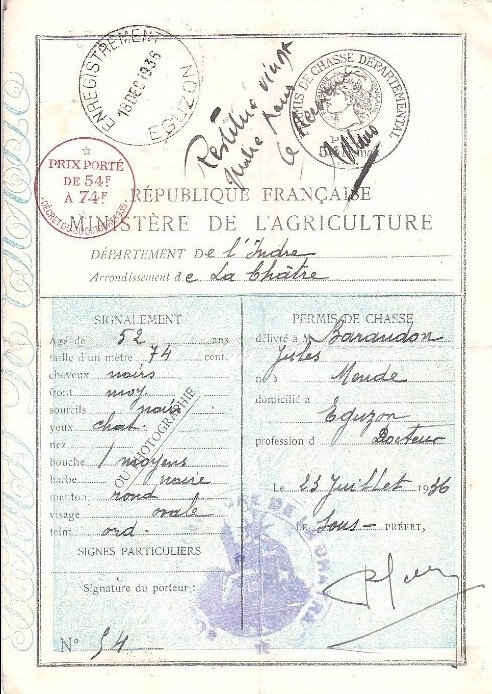 ENREGISTREMENT
18 DEC 1936
EGUZON
PERMIS DE CHASSE DÉPARTEMENTAL
Restitué vingt
quatre francs
Le Receveur
PRIX PORTÉ
DE 54F
À 74F
RÉPUBLIQUE FRANÇAISE
MINISTÈRE DE L'AGRICULTURE
DÉPARTEMENT De l'Indre
Arrondissement de La Châtre
SIGNALEMENT
Agé de 52 ans
taille d'un mètre 74 cent.
cheveux noirs
front moy
sourcils noirs
yeux chat.
nez
bouche moyens
barbe noire
menton rond
visage ovale
teint ord.
SIGNES PARTICULIERS
OU PHOTOGRAPHIE
Signature du porteur:
N° 54
PERMIS DE CHASSE
délivré à M Baraudon
Jules
né à Meude
domicilié à
Eguzon
profession d Docteur
Le 23 Juillet 1936
LE Sous-PRÉFET,